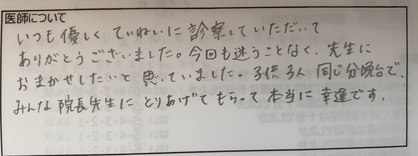 医師について
いつも優しく ていねいに 診察していただいて
ありがとうございました。今回も迷うことなく、先生に
おまかせしたいと 思っていました。子供3人 同じ分娩台で、
みんな 院長先生に とりあげて もらって 本当に 幸運です。